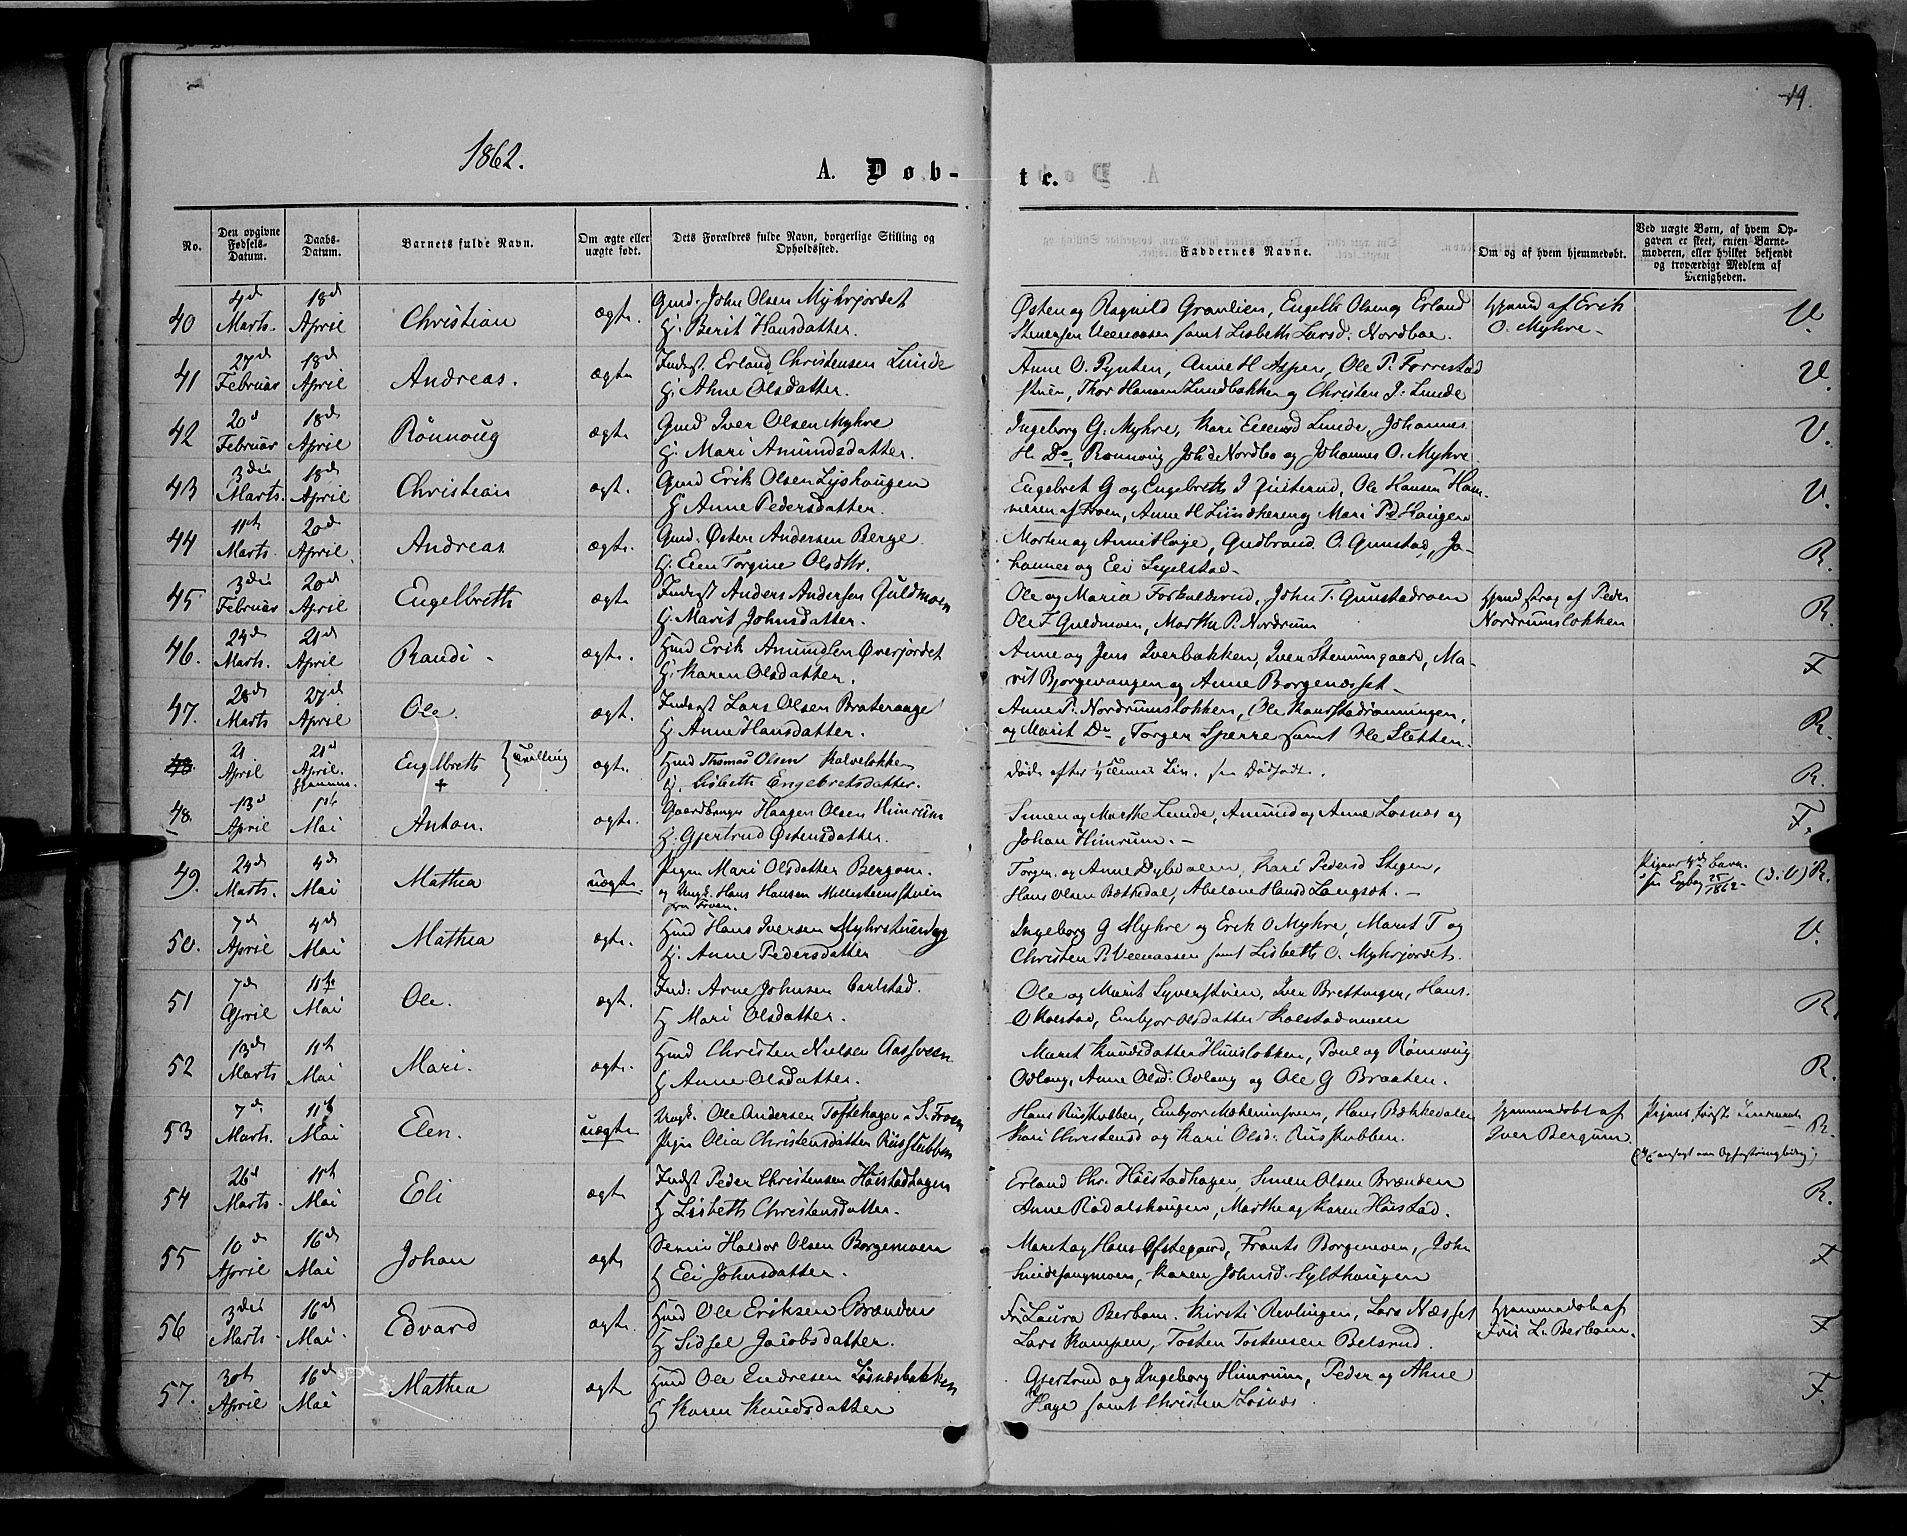 19.
1862.
A. Døb-
te.
No.
Den opgivne Fødsels-Datum.
Daabs-Datum.
Barnets fulde Navn.
Om ægte eller uægte født.
Dets Forældres fulde Navn, borgerlige Stilling og Opholdssted.
Faddernes Navne.
Om og af hvem hjemmedøbt.
Ved uægte Børn, af hvem Opgaven er skeet, enten Barnemoderen, eller hvilket bekjendt og troværdigt Medlem af Menigheden.
40 4d Marts. 18d April Christian ægte. Gmd. John Olsen Myhrjordet
H: Berit Hansdatter.
Østen og Ragnild Granlien, Engelth Olsen og Erland
Veenaasen samt Lisbeth Larsd: Nordboe.
Hjemmd af Erik
O. Myhre.
V.
41 27d Februar 18d April Andreas. ægte Inderst. Erland Christensen Lunde
H: Ahne Olsdatter.
Anne O. Pynten, Anne H Aspen, Ole P. Forrestad
stuen, Thor Hansen Lundbakken og Christen J. Lunde
V.
42 20d Februar 18d April Rønnoug ægte Gmd Iver Olsen Myhre
H: Mari Amundsdatter.
Ingeborg G. Myhre, Kari Lunde, Johannes
H. Do, Rønnoug Nordbo og Johannes O. Myhre.
V.
43 3die Marts. 18d April Christian ægt. Gmd Erik Olsen Lyshougen
H Anne Pedersdatter.
Engebret G og Engebreth J, Ole Hansen Ham-
meren af Froen, Anne H og Mari Pd Haugen
V.
44 11te Marts. 20d April Andreas ægte. Gmd: Østen Andersen Berge.
H: Elen Torgine Olsdttr.
Morten og Anne Hage, Gudbrand O. Gunstad, Jo-
hannes og Eli Segelstad.
R.
45 3die Februar 20d April Engelbreth ægte Inderst Anders Andersen Guldmoen
H: Marit Johnsdatter.
Ole og Maria Forkalsrud, John T. Gunstadmoen
Ole Guldmoen, Marthe P. Nordrum
Hjemd strax af Peder
Nordrumsløkken
R.
46. 24d Marts. 21d April Randi ægte. Hmd Erik Amundsen Øverjordet
H: Karen Olsdatter.
Anne og Jens Iverbakken, Iver Stenumgaard, Ma-
rit Bjørgevangen og Anne Borgenæsset
F
47. 28d Marts 27d April Ole. ægt. Inderst Lars Olsen Brateraage
H Anne Hansdatter.
Anne P. Nordrumsløkken, Ole Kanstadrønningen,
og Marit Do, Torger Sperre samt Ole Sletten.
R.
48. 21 April 21d April. hjemme. Engelbreth + Tvilling ægt. Hmd Thomas Olsen Kalveløkken
H. Lisbeth Engebretsdatter.
Døde efter ½ Times Liv. see Dødfødt.
R.
48. 13d April 1ste Mai Anton. ægte. Gaardbruger Haagen Olsen Himrum
H: Gjertrud Østensdatter.
Simen og Marthe Lunde, Amund og Anne Løsnæs og
Johan Himrum.
F.
49. 24d Marts. 4d Mai Mathea uægte. Pigen Mari Olsdatter Bergum.
og Ungk. Hans Hansen Millesteinsstuen
fra Froen.
Torger og Anne Dybdalen, Kari Pedersd Stigen,
Hans Olsen Bækkedal, Abelone Hansd Langset.
Pigens Barn.
1862 (d. V) R.
50. 7d April 4d Mai Mathea ægte. Hmd Hans Iversen Myhrstuen
H: Anne Pedersdatter
Ingeborg G Myhre og Erik O Myhre, Marit T og
Christen P. Veenaasen samt Lisbeth O. Myhrjordet.
V.
51 7d April 11te Mai Ole. ægt. Ind: Arne Johnsen Carlstad.
H Mari Olsdatter.
Ole og Marit Syverstuen, Iver Brettingen, Hans
O Kolstad, Embjør Olsdatter Kolstadmoen
R.
52 13d Marts 11te Mai Mari. ægte. Hmd Christen Nielsen Aassveen
H Anne Olsdatter.
Marit Knudsdatter Huusløkken, Poul og Rønnoug
Odlang, Anne Olsd: Odlang og Ole G Braaten.
R.
53 7de Marts. 11te Mai Elen. uægte Ungk. Ole Andersen Toftehagen i S. Froen
Pigen Olia Christensdatter Russtubben
Hans Russtubben, Embjør, Hans Bækkedalen
Kari Christensd og Kari Olsd: Russtubben.
Hjemmedøbt af
Iver Bergum.
Pigens første
R.
54 26d Marts. 11te Mai Eli ægte Indst Peder Christensen Høistadhagen
H Lisbeth Christensdatter.
Erland Chr. Høistadhagen, Simen Olsen Brænden
Anne Rodalshaugen, Marthe og Karen Høistad.
R.
55 10d April 16d Mai Johan ægte Haldor Olsen Borgemoen
H Eli Johnsdatter.
Marit og Hans Øfstegaard, Frants Borgemoen, John
Karen Johnsd. Sylthaugen
F
56 3die Marts. 16d Mai. Edvard ægte. Hmd Ole Eriksen Brænden
H Sidsel Jacobsdatter.
Fr. Laura Berbom. Kirsti Revlingen, Lars Næsset
Lars Kampen, Tosten Tostensen Belsrud.
Hjemmedøbt af
Frk L. Berbom.
F
57. 30te April 16d Mai Mathea ægte Hmd Ole Endresen Løsnæsbakken
H Karen Knudsdatter
Gjertrud og Ingeborg Himrum, Peder og Ahne
Hage samt Christen Løsnæs.
F.